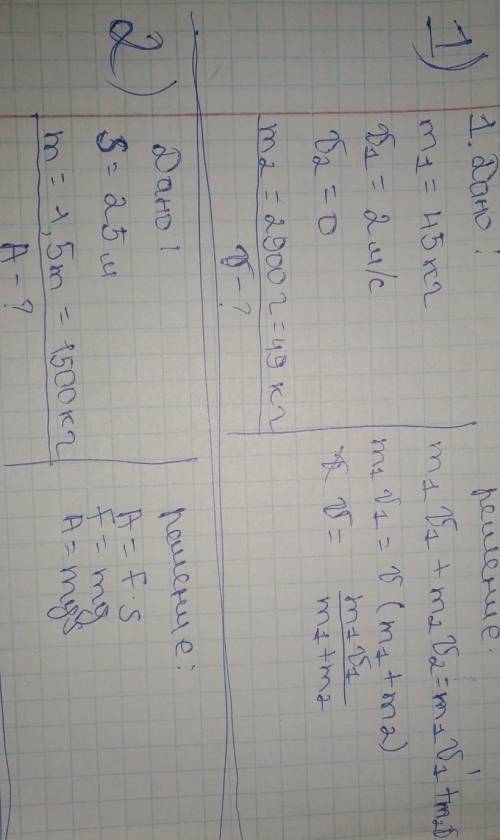 1)
1. Дано:
m₁ = 45 кг
v₁ = 2 м/с
v₂ = 0
m₂ = 2900г = 49 кг
v - ?
решение.
m₁v₁ + m₂v₂ = m₁v₁' + m₂v
m₁v₁ = v (m₁ + m₂)
v = m₁v₁ / m₁ + m₂
2)
Дано!
S = 25 м
m = 1,5т = 1500кг
A - ?
решение:
A = F · S
F = mg
A = mgS